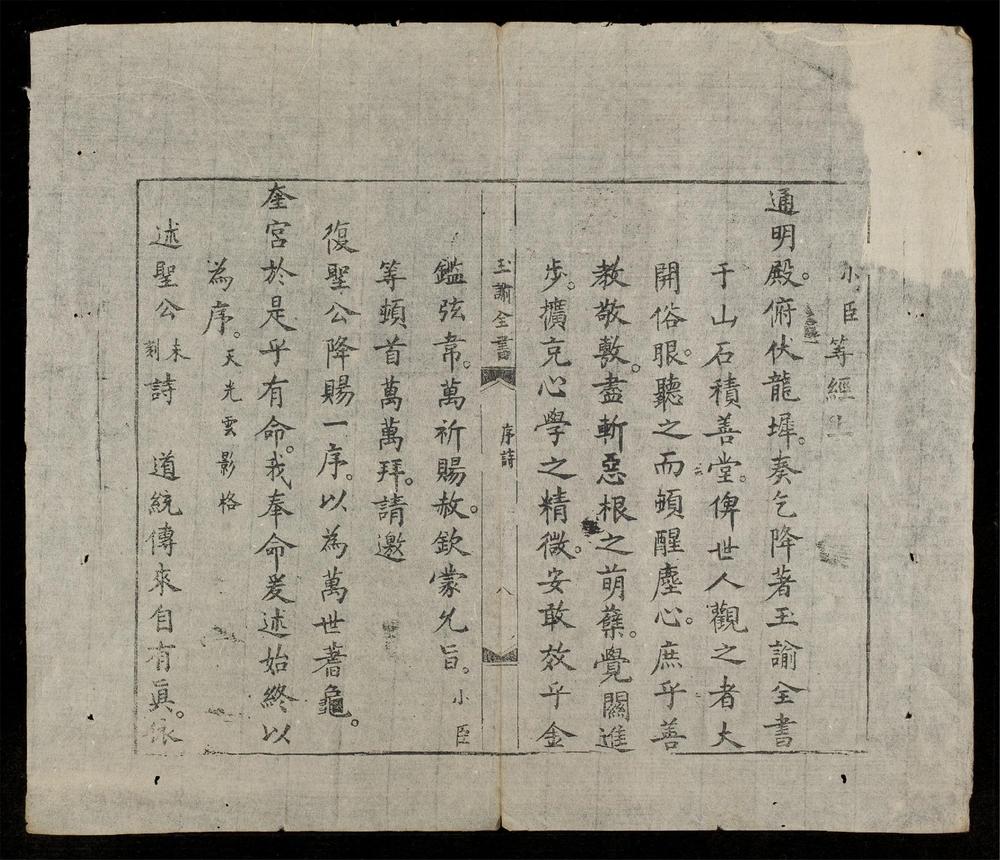 小臣等經上
通明殿。俯伏龍墀。奏乞降著玉諭全書
于山石積善堂。俾世人觀之者大
開俗眼。聽之而頓醒塵心。庶乎善
教敬敷。盡斬惡根之萌蘖。覺關進
步。擴充心學之精微。安敢效乎金
玉諭全書 序詩 八
鑑弦韋。萬祈賜赦。欽蒙允旨。小臣
等頓首萬萬拜。請邀
復聖公降賜一序。以為萬世蓍龜。
奎宮於是乎有命。我奉命爰述始終以
為序。天光雲影格
述聖公未刻詩 道統傳來自有眞。